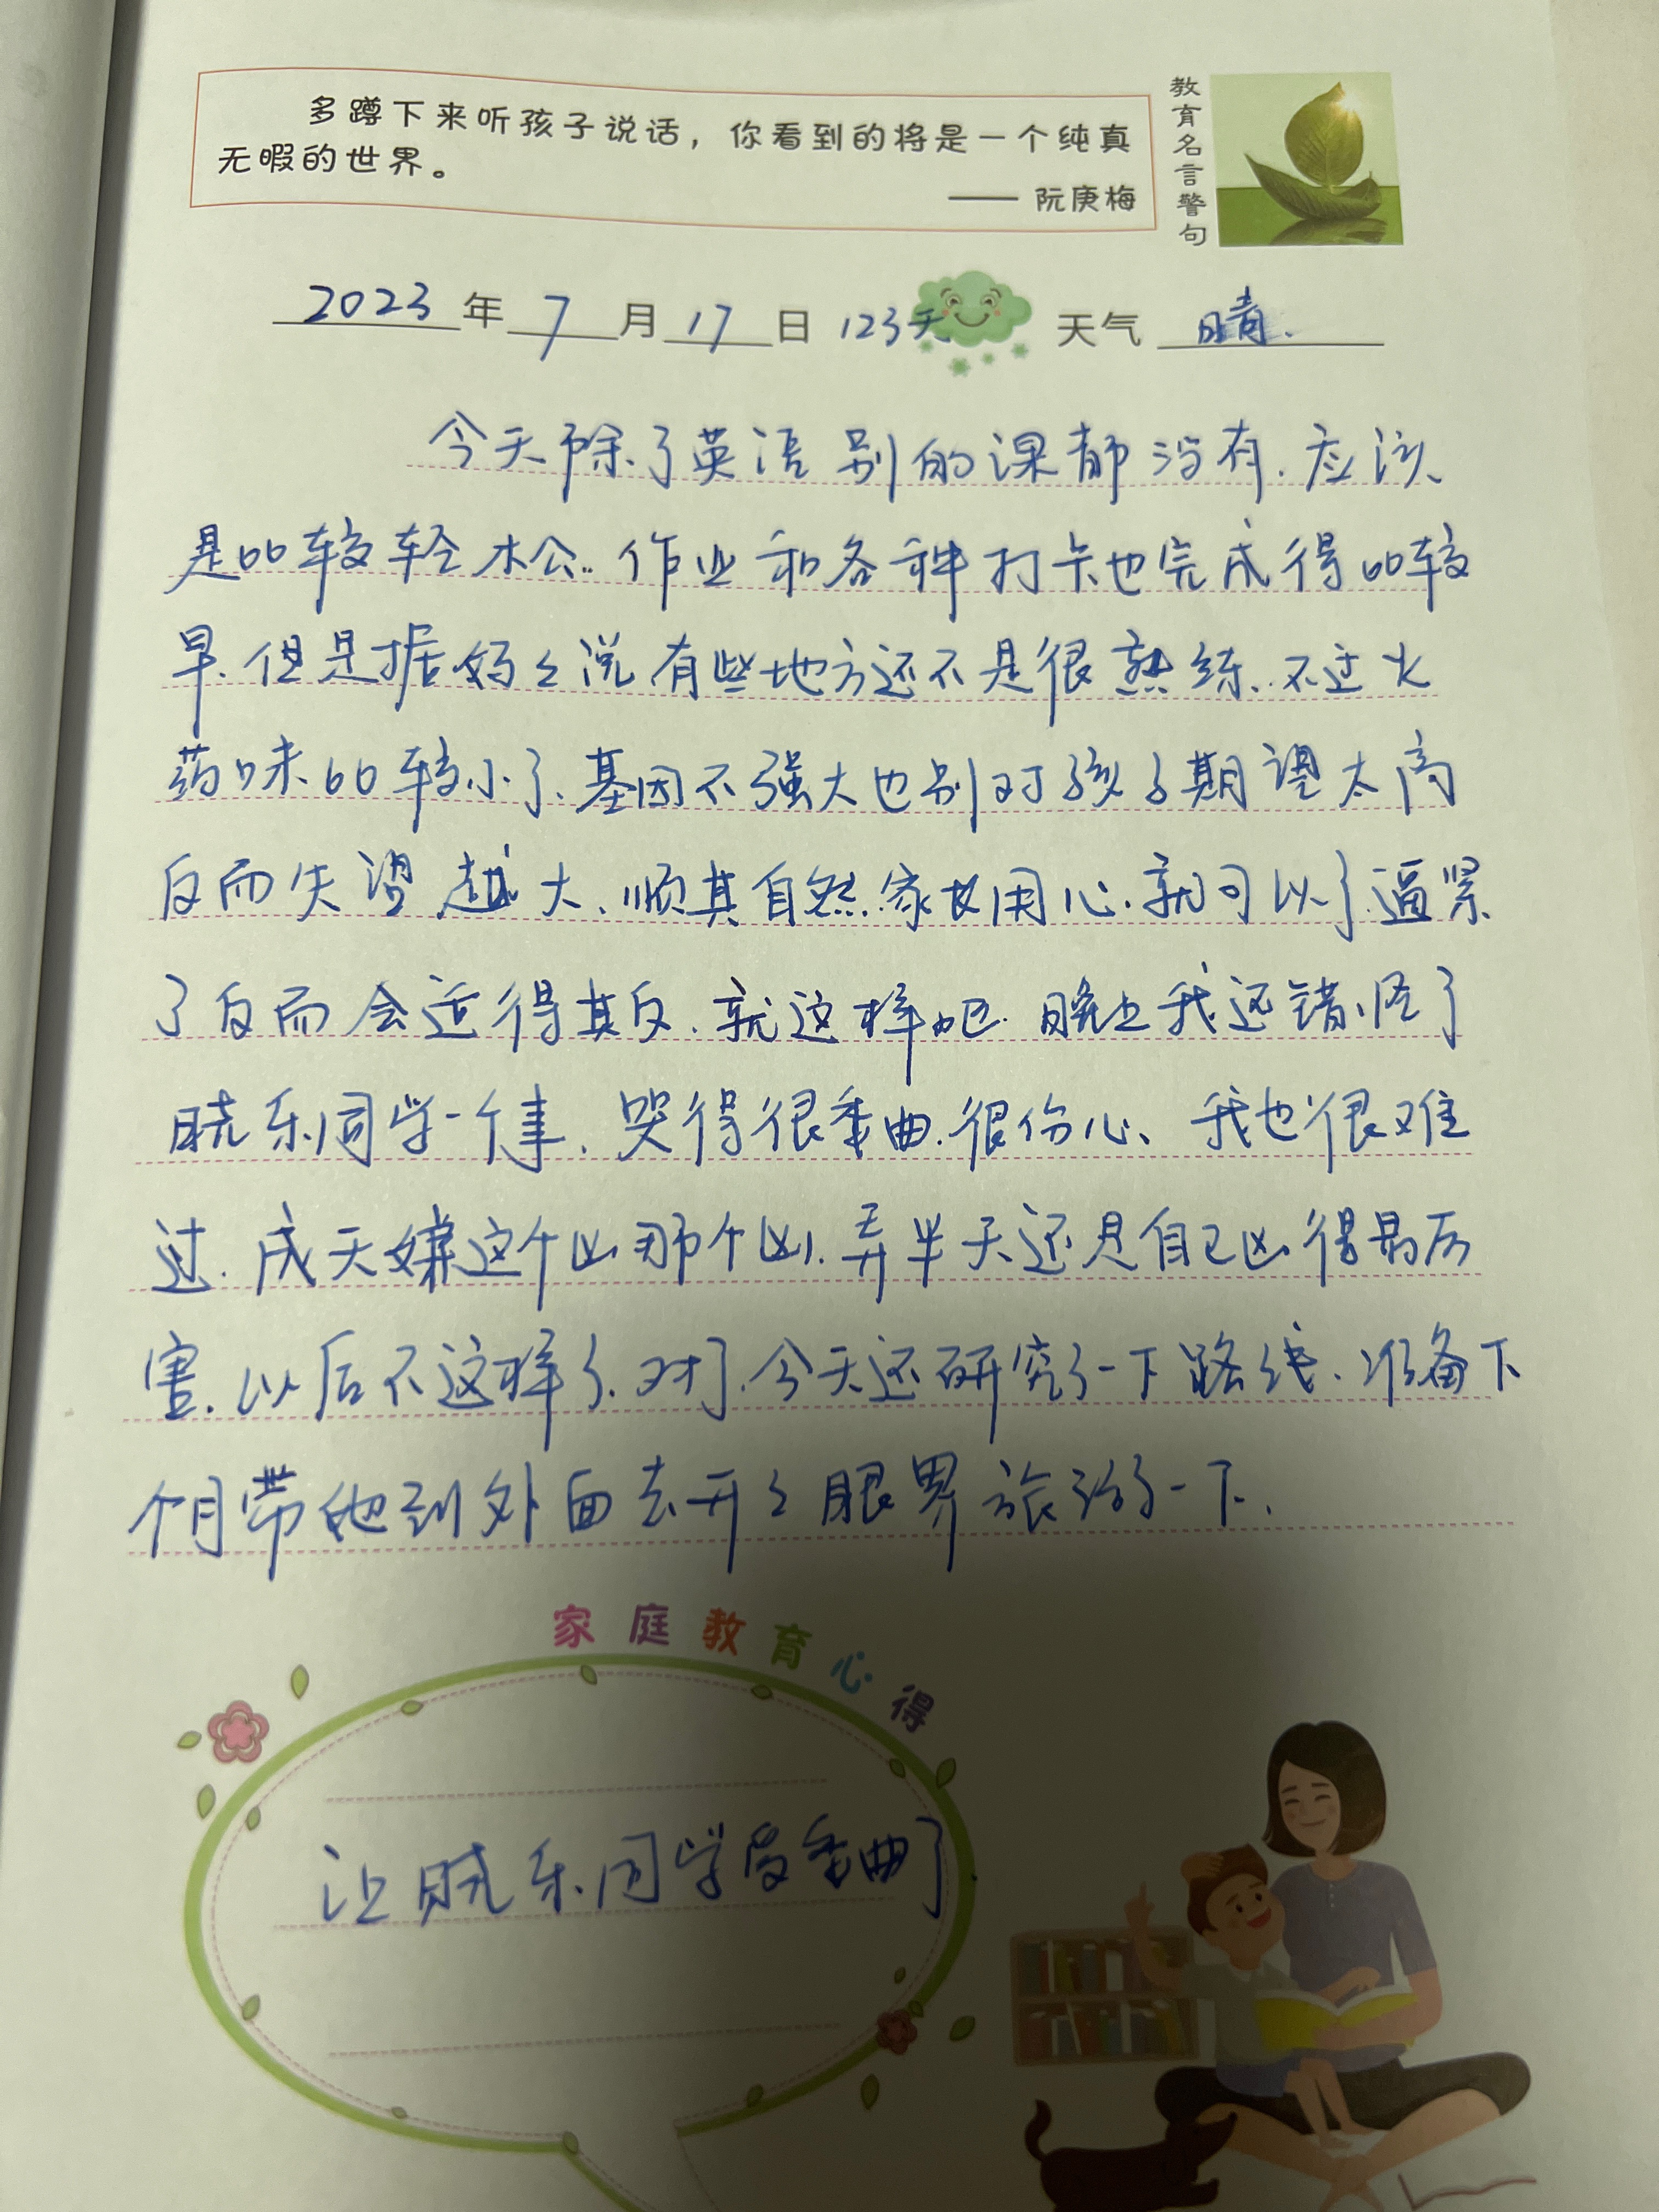 多蹲下来听孩子说话，你看到的将是一个纯真
无暇的世界。
—— 阮庚梅
教育名言警句
2023年7月17日 123天 天气 晴.
今天除了英语别的课都没有.应该
是比较轻松..作业和各种打卡也完成得比较
早.但是据妈々说有些地方还不是很熟练.不过火
药味比较小了.基因不强大也别对孩子期望太高
反而失望越大、顺其自然.家长用心.就可以了.逼紧
了反而会适得其反.就这样吧.晚上我还错怪了
晓乐同学一件事.哭得很委曲.很伤心、我也很难
过.成天嫌这个凶那个凶.弄半天还是自己凶得最厉
害.以后不这样了.对了.今天还研究了一下路线.准备下
个月带他到外面去开々眼界旅游了一下.
家庭教育心得
让晓乐同学受委曲了.